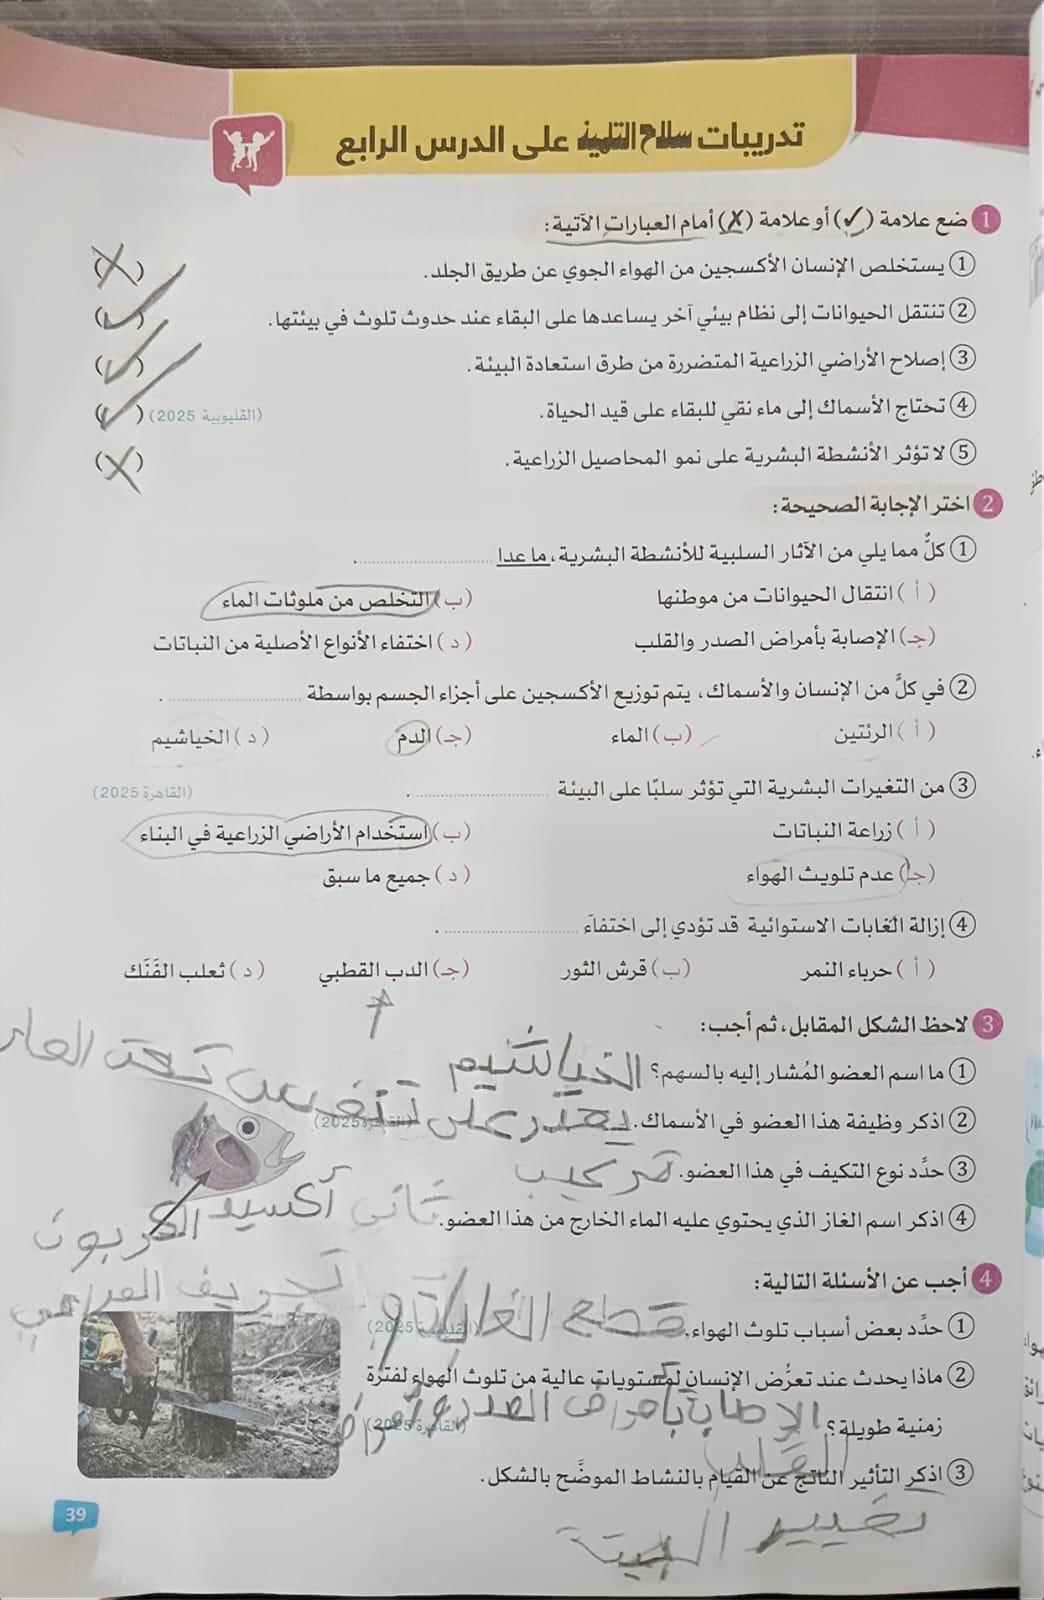 تدريبات سلاح التلميذ على الدرس الرابع
1 ضع علامة (✓) أو علامة (✗) أمام العبارات الآتية:
① يستخلص الإنسان الأكسجين من الهواء الجوي عن طريق الجلد. (✗)
② تنتقل الحيوانات إلى نظام بيئي آخر يساعدها على البقاء عند حدوث تلوث في بيئتها. (✓)
③ إصلاح الأراضي الزراعية المتضررة من طرق استعادة البيئة. (✓)
④ تحتاج الأسماك إلى ماء نقي للبقاء على قيد الحياة. (القليوبية 2025) (✓)
⑤ لا تؤثر الأنشطة البشرية على نمو المحاصيل الزراعية. (✗)
2 اختر الإجابة الصحيحة:
① كلٌّ مما يلي من الآثار السلبية للأنشطة البشرية، ما عدا ....................
(أ) انتقال الحيوانات من موطنها (ب) التخلص من ملوثات الماء
(جـ) الإصابة بأمراض الصدر والقلب (د) اختفاء الأنواع الأصلية من النباتات
② في كلٍّ من الإنسان والأسماك، يتم توزيع الأكسجين على أجزاء الجسم بواسطة ....................
(أ) الرئتين (ب) الماء (جـ) الدم (د) الخياشيم
③ من التغيرات البشرية التي تؤثر سلبًا على البيئة .................... (القاهرة 2025)
(أ) زراعة النباتات (ب) استخدام الأراضي الزراعية في البناء
(جـ) عدم تلويث الهواء (د) جميع ما سبق
④ إزالة الغابات الاستوائية قد تؤدي إلى اختفاء ....................
(أ) حرباء النمر (ب) قرش الثور (جـ) الدب القطبي (د) ثعلب الفَنَك
3 لاحظ الشكل المقابل، ثم أجب:
① ما اسم العضو المُشار إليه بالسهم؟ الخياشيم
② اذكر وظيفة هذا العضو في الأسماك. (القاهرة 2025) يقدر على تنفس تحت الماء
③ حدِّد نوع التكيف في هذا العضو. تركيب
④ اذكر اسم الغاز الذي يحتوي عليه الماء الخارج من هذا العضو. ثاني أكسيد الكربون
4 أجب عن الأسئلة التالية:
① حدِّد بعض أسباب تلوث الهواء. (القليوبية 2025) قطع الغابات و تجريف
② ماذا يحدث عند تعرُّض الإنسان لمستويات عالية من تلوث الهواء لفترة
زمنية طويلة؟ (القاهرة 2025) الإصابة بأمراض الصدر وأمراض
القلب
③ اذكر التأثير الناتج عن القيام بالنشاط الموضَّح بالشكل.
تغيير البيئة
39